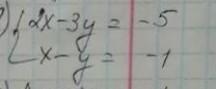 ) { 2x-3y = -5
x-y = -1